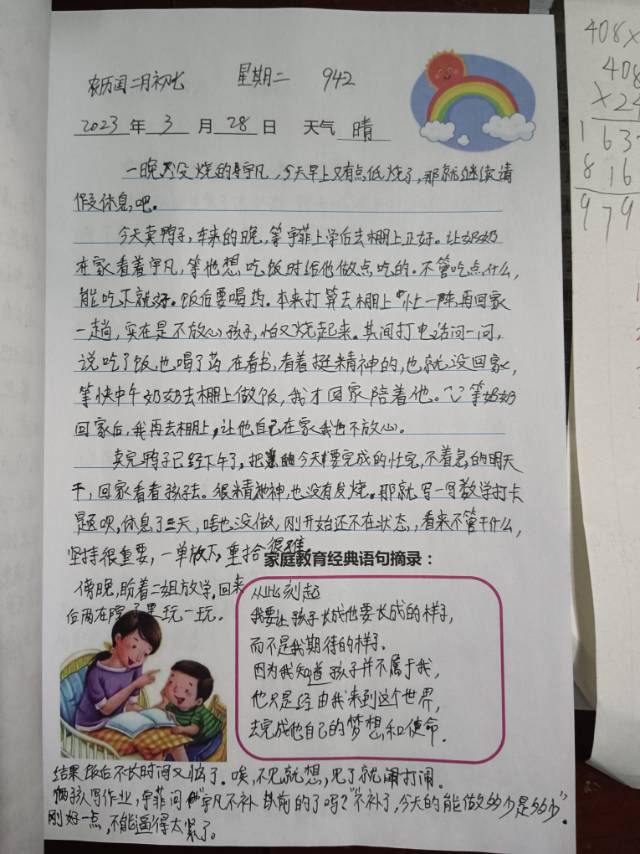 农历闰二月初七 星期二 942
2023 年 3 月 28 日 天气 晴
一晚没烧的宇凡，今天早上又有点低烧了，那就继续请
假休息吧。
今天卖鸭子，车来的晚，等宇菲上学后去棚上正好。让奶奶
在家看着宇凡，等他想吃饭时给他做点吃的。不管吃点什么，
能吃下就好。饭后要喝药。本来打算去棚上忙一阵再回家
一趟，实在是不放心孩子，怕又烧起来。其间打电话问一问，
说吃了饭也喝了药，在看书，看着挺精神的，也就没回家，
等快中午奶奶去棚上做饭，我才回家陪着他。等奶奶
回家后，我再去棚上，让他自己在家我也不放心。
卖完鸭子已经下午了，把今天要完成的忙完，不着急的明天
干，回家看看孩子去。很精神，也没有发烧。那就写一写数学打卡
题呗，休息了三天，啥也没做，刚开始还不在状态，看来不管干什么，
坚持很重要，一单放下，重拾很难
家庭教育经典语句摘录：
傍晚，盼着二姐放学，回来
后两在院子里玩一玩。
从此刻起
我要让孩子长成他要长成的样子，
而不是我期待的样子。
因为我知道孩子并不属于我，
他只是经由我来到这个世界，
去完成他自己的梦想和使命.
结果饭后不长时间又恼了。唉，不见就想，见了就闹打闹.
俩孩写作业，宇菲问"宇凡不补以前的了吗？"不补了，今天的能做多少是多少"。
刚好一点，不能逼得太紧了。
408×
408
×24
163
816
979